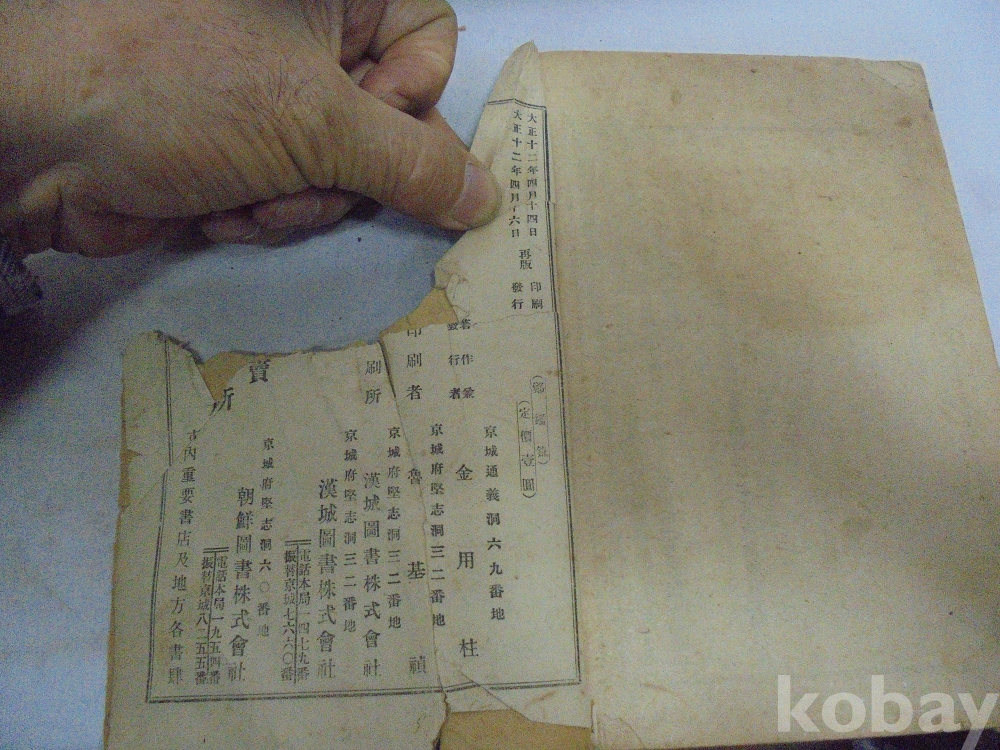 大正十二年四月十四日 印刷
大正十二年四月十六日 再版 發行
定價壹圓
京城通義洞六九番地
著作兼
發行者 金用柱
京城府堅志洞三二番地
印刷者 魯基禎
京城府堅志洞三二番地
刷所 漢城圖書株式會社
京城府堅志洞三二番地
漢城圖書株式會社
電話本局一四七九番
振替京城七六六〇番
賣
所
京城府堅志洞六〇番地
朝鮮圖書株式會社
電話本局一九五四番
振替京城八二五五番
內重要書店及地方各書肆
kobay